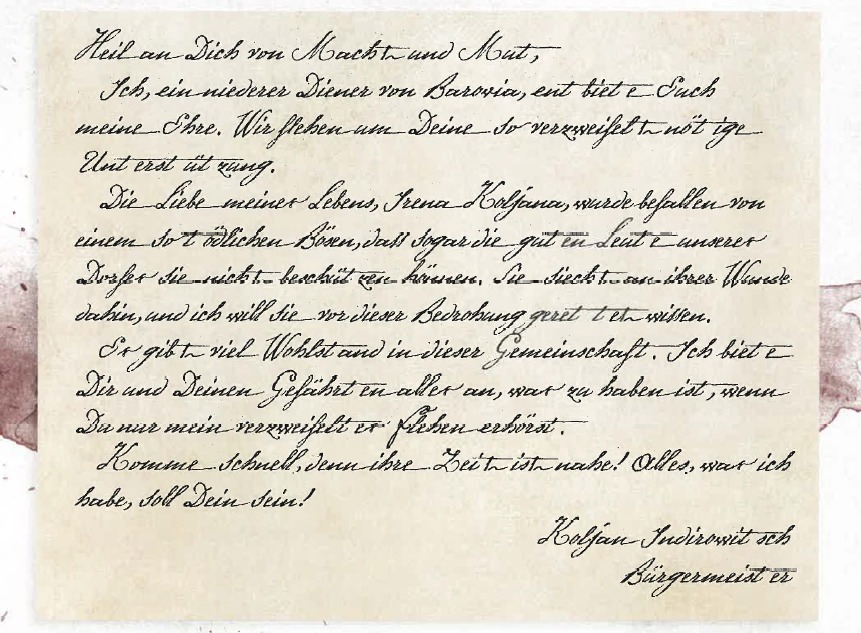 Heil an Dich von Macht und Mut,
Ich, ein niederer Diener von Barovia, entbiete Euch
meine Ehre. Wir flehen um Deine so verzweifelt nötige
Unterstützung.
Die Liebe meines Lebens, Irena Koljana, wurde befallen von
einem so tödlichen Bösen, dass sogar die guten Leute unseres
Dorfes sie nicht beschützen können. Sie siecht an ihrer Wunde
dahin, und ich will sie vor dieser Bedrohung gerettet wissen.
Es gibt viel Wohlstand in dieser Gemeinschaft. Ich biete
Dir und Deinen Gefährten alles an, was zu haben ist, wenn
Du nur mein verzweifeltes Flehen erhörst.
Komme schnell, denn ihre Zeit ist nahe! Alles, was ich
habe, soll Dein sein!
Koljan Indirowitsch
Bürgermeister